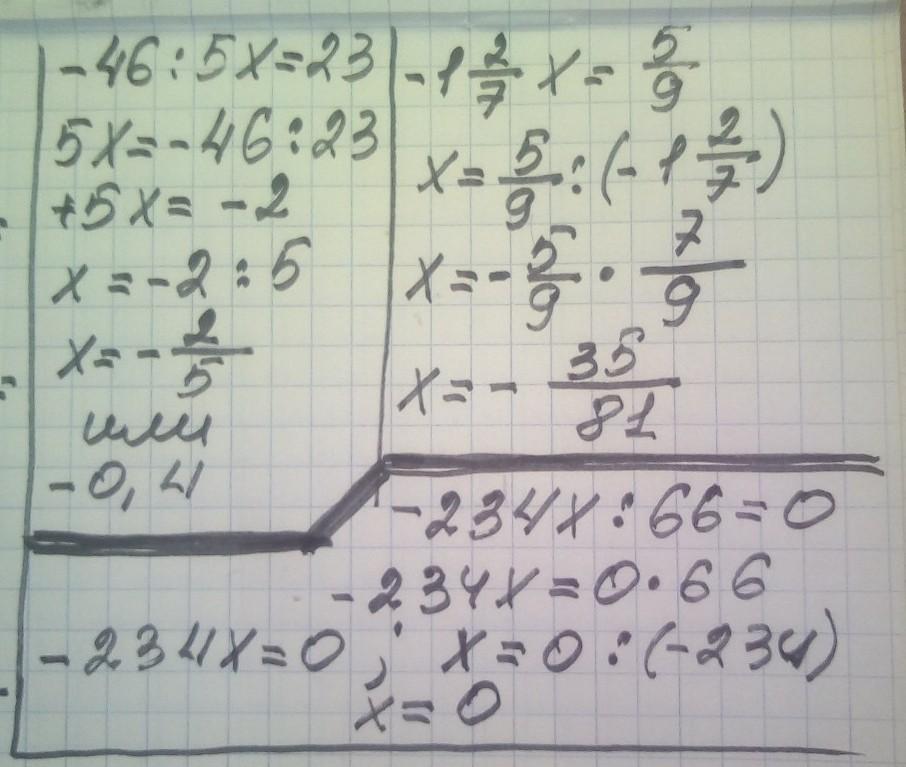 -46:5x=23
5x=-46:23
+5x=-2
x=-2:5
x=-2/5
или
-0,4
-1 2/7 x=5/9
x=5/9:(-1 2/7)
x=-5/9·7/9
x=-35/81
-234x:66=0
-234x=0·66
-234x=0; x=0:(-234)
x=0